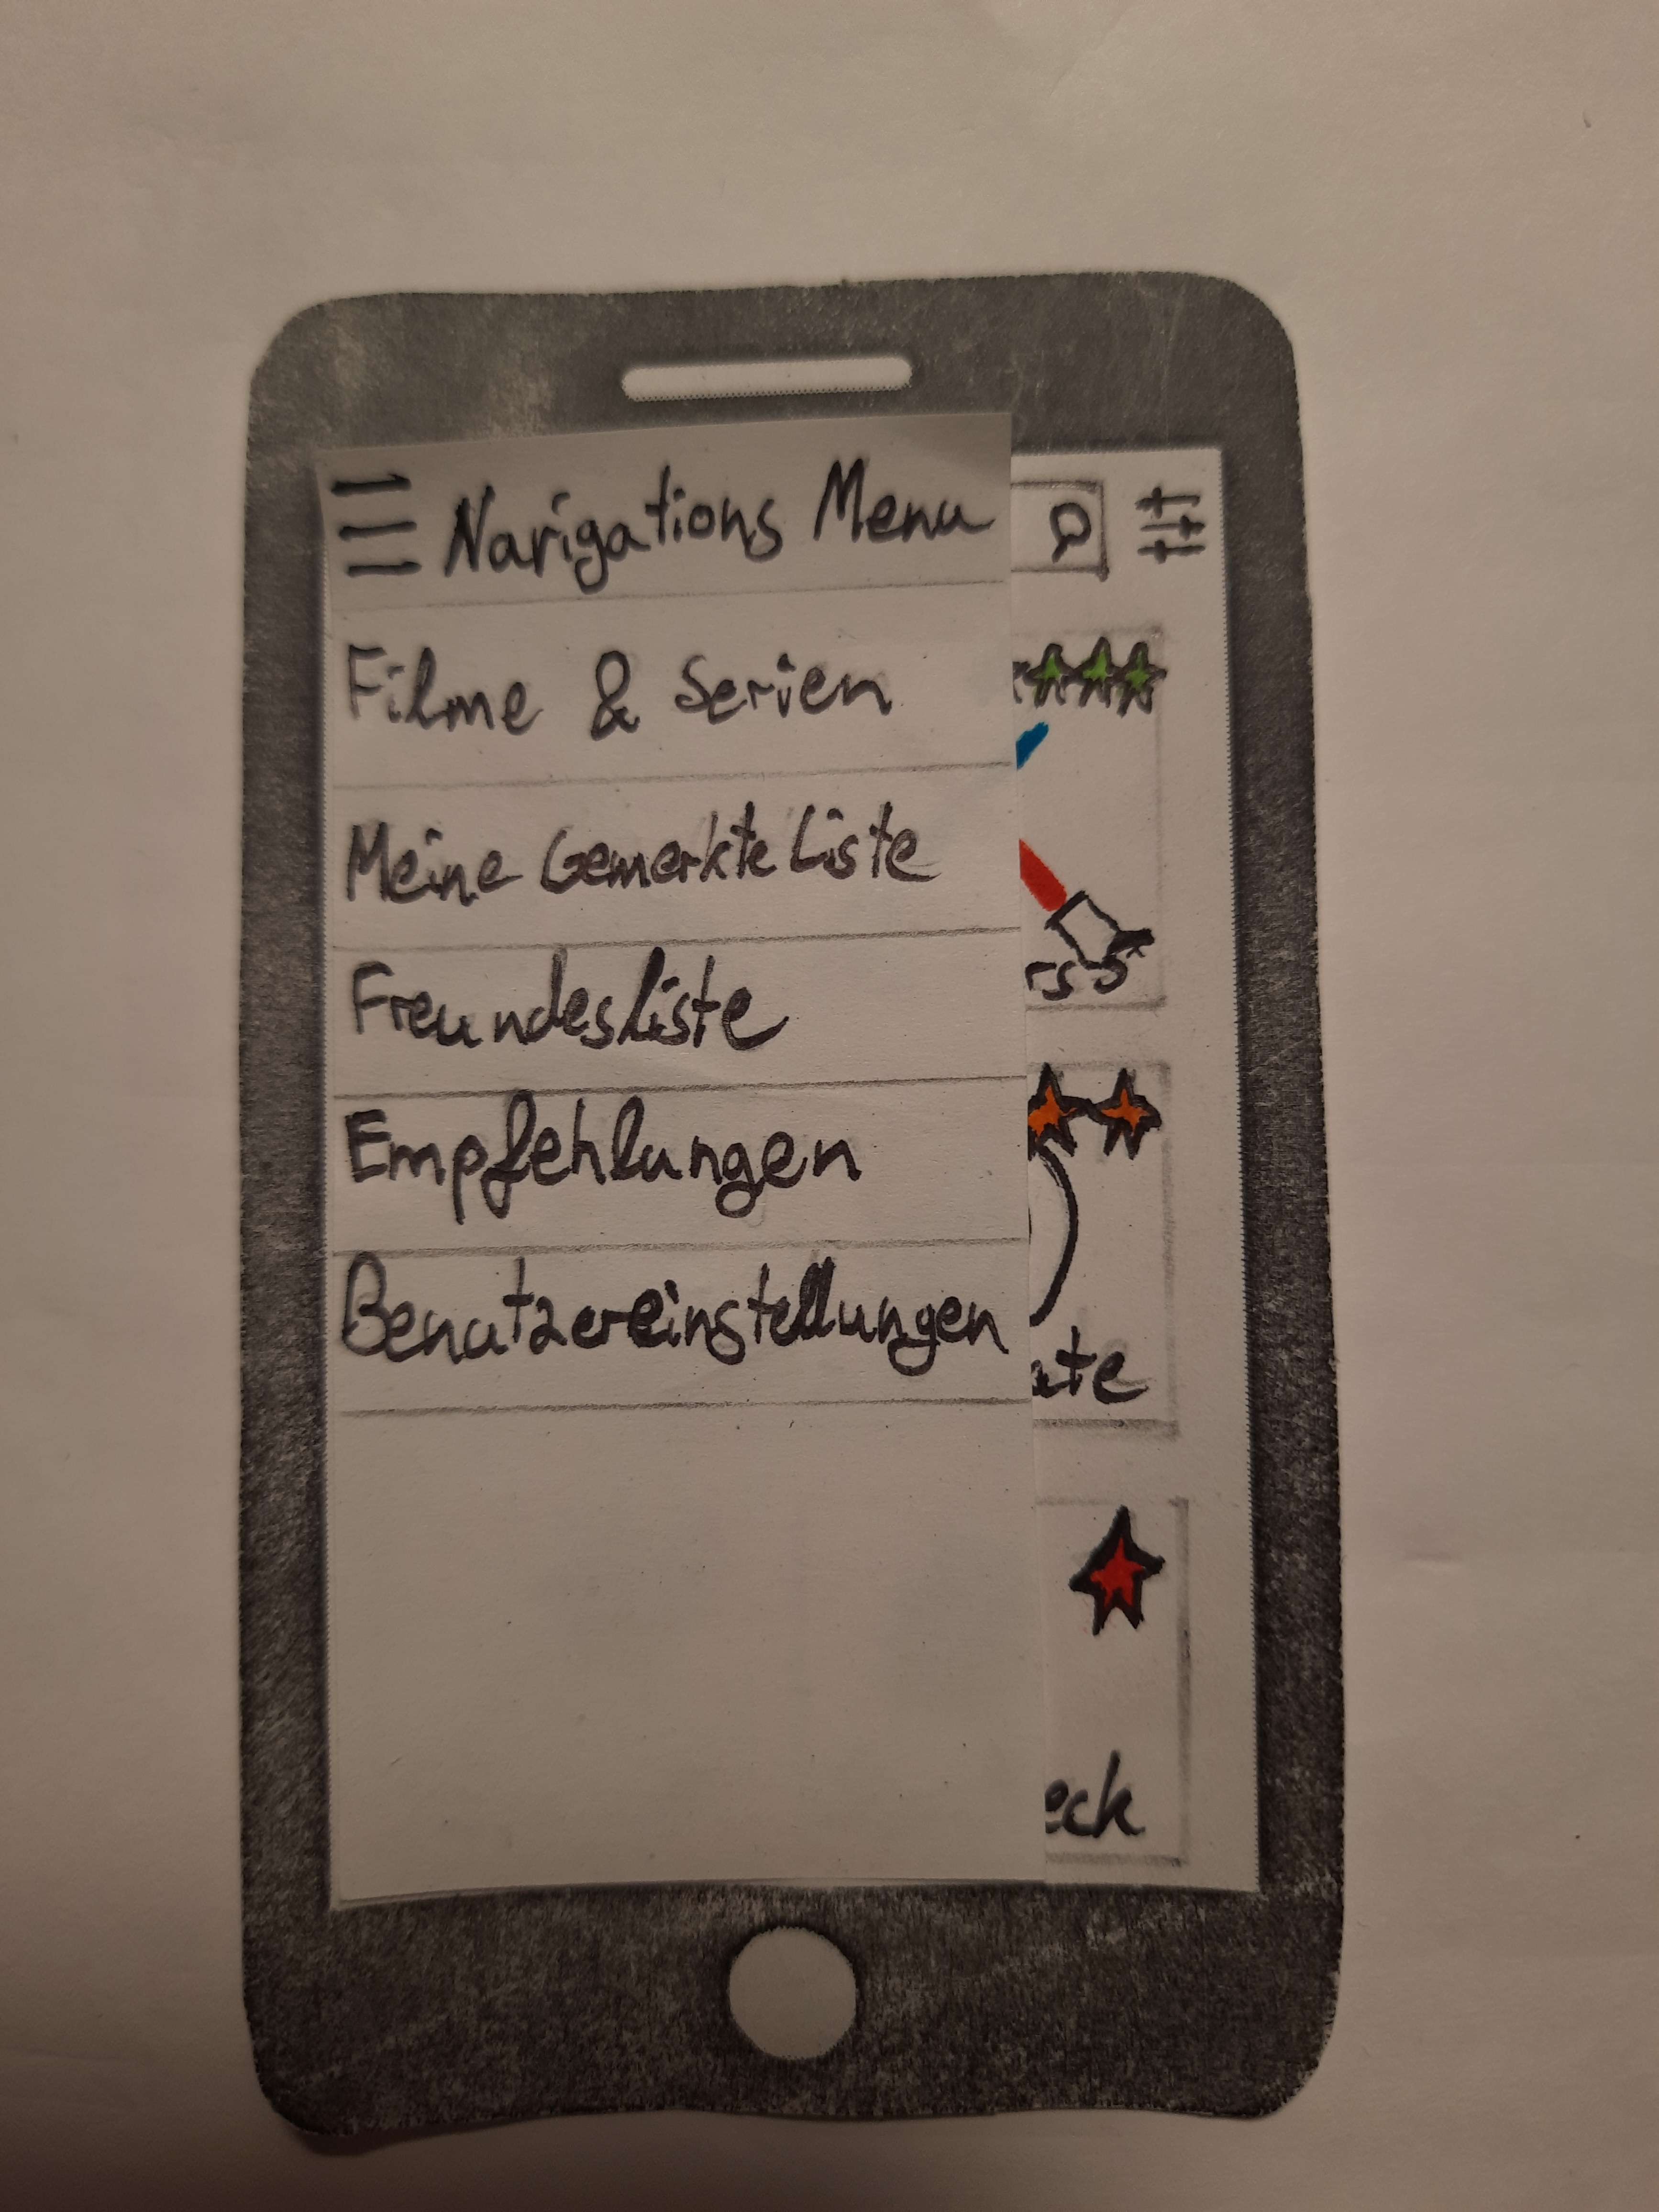 Navigations Menu
Filme & Serien
Meine Gemerkte Liste
Freundesliste
Empfehlungen
Benutzereinstellungen
ate
eck